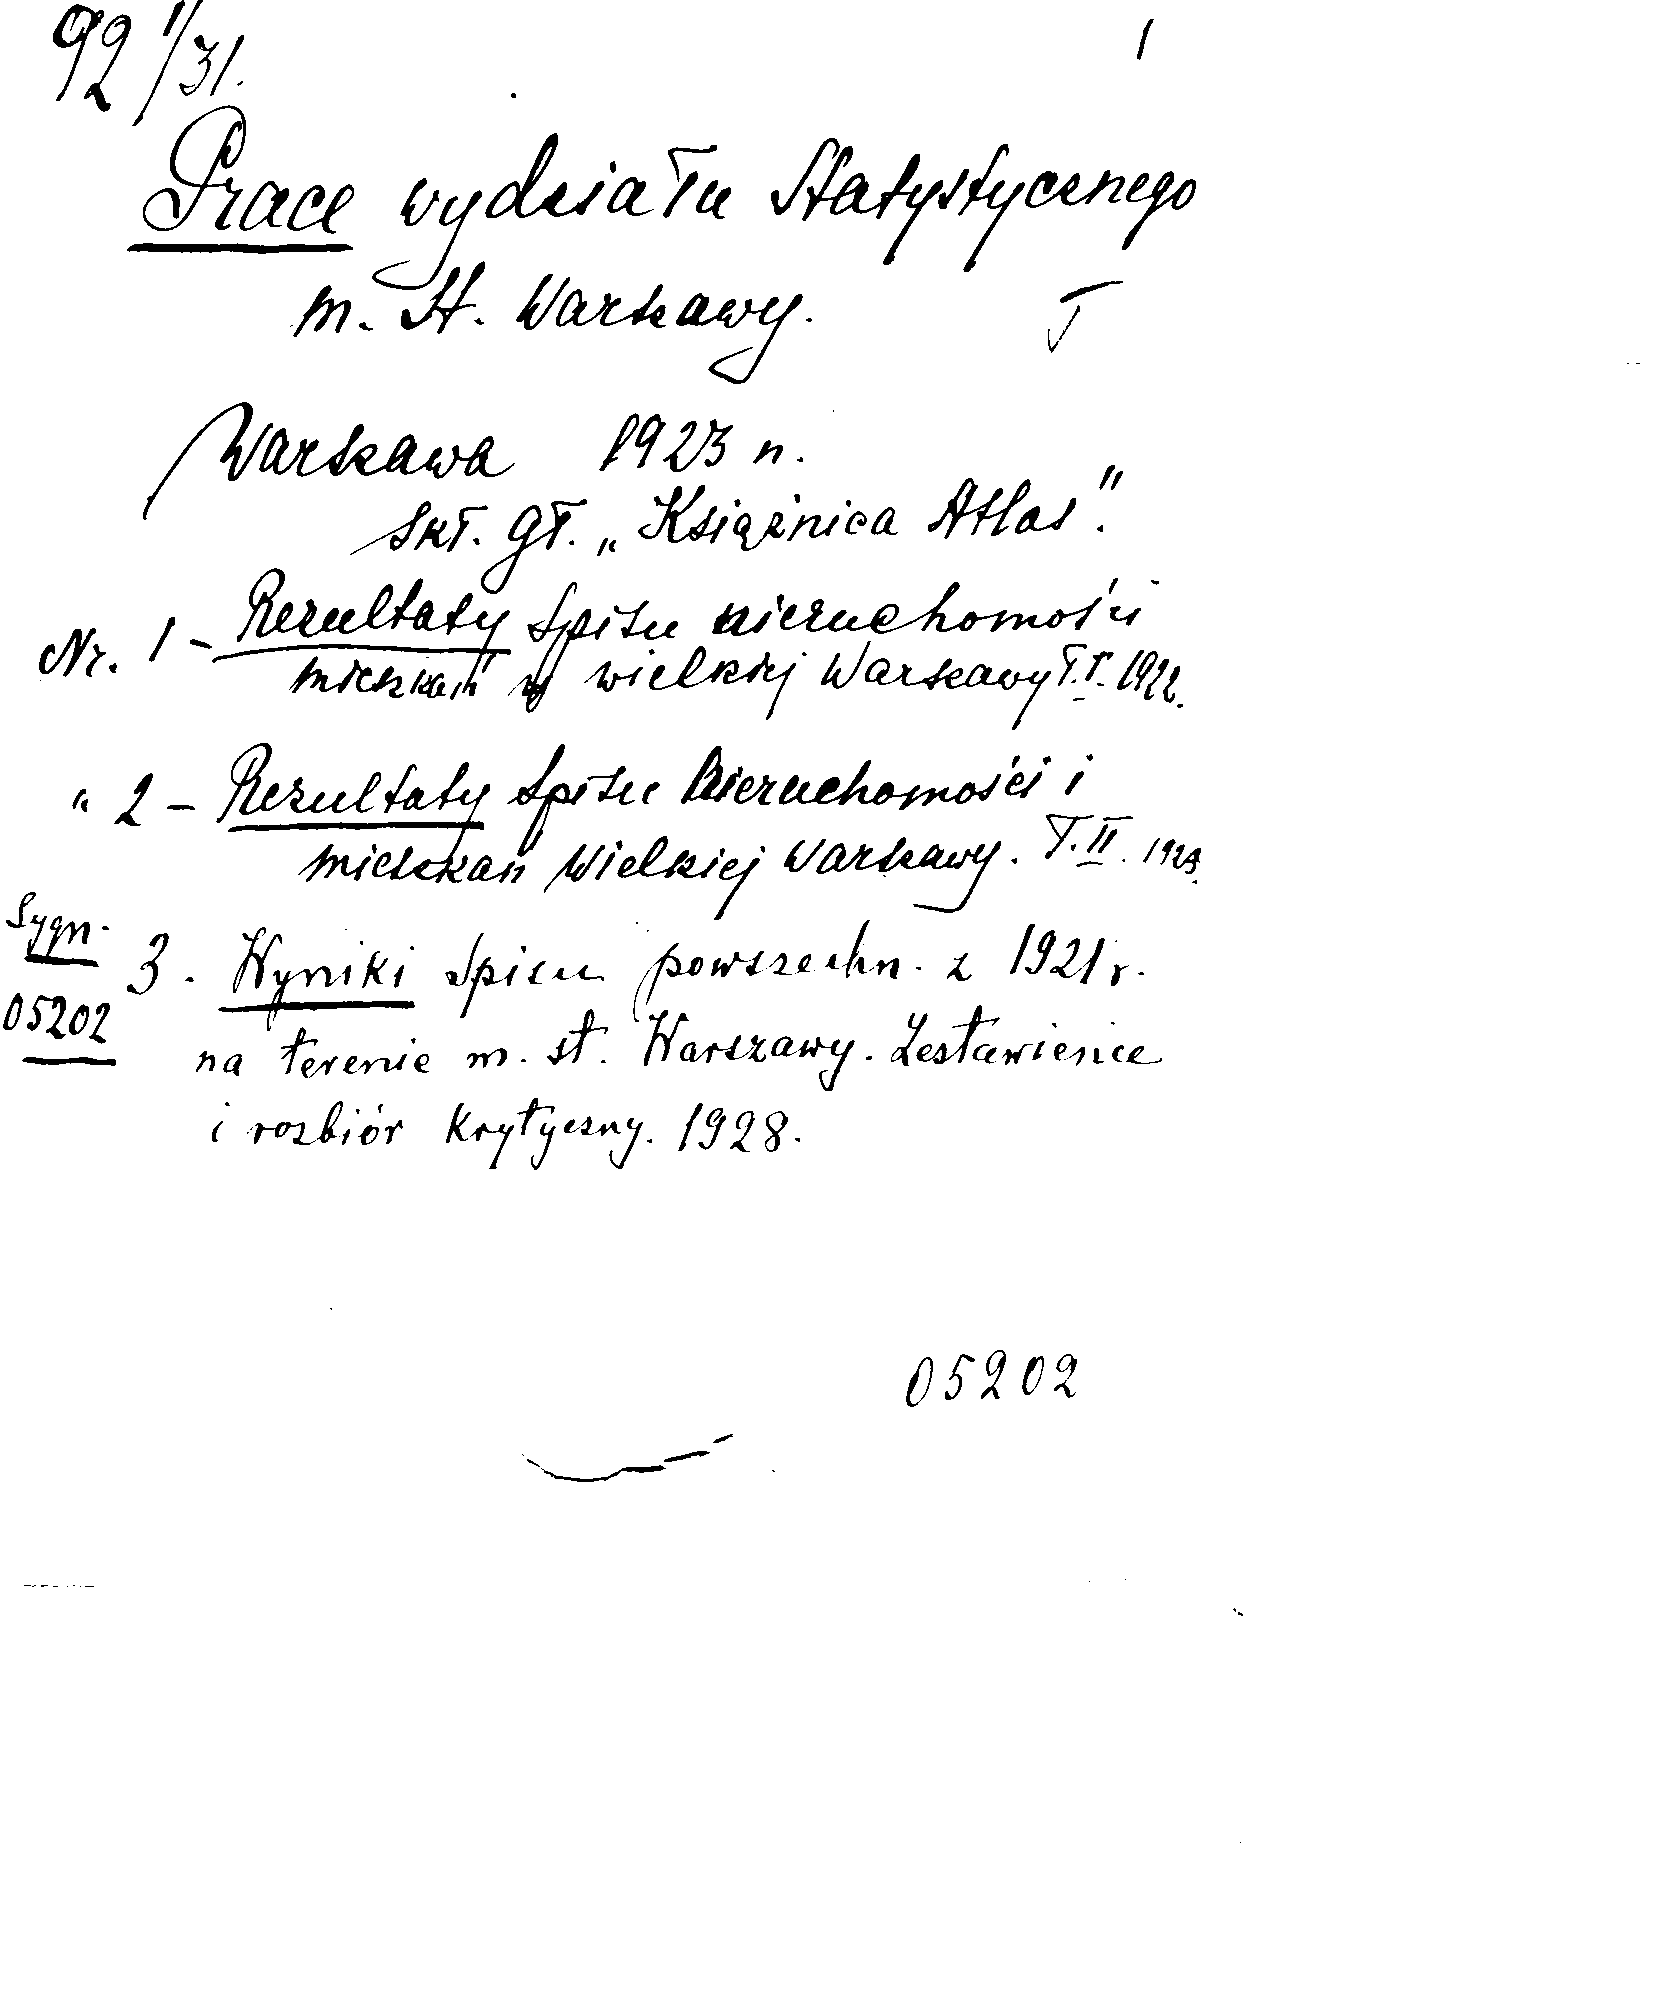 92 1/31.
1
Prace wydziału Statystycznego
m. St. Warszawy.
T
Warszawa 1923 r.
Skł. gł. „Książnica Atlas".
Nr. 1 - Rezultaty Spisu nieruchomości
mieszkań wielkiej Warszawy T.I. 1922.
" 2 - Rezultaty Spisu Nieruchomości i
mieszkań Wielkiej Warszawy. T. II. 1923.
Sygn. 3. Wyniki Spisu powszechn. z 1921 r.
05202
na terenie m. st. Warszawy. Zestawienie
i rozbiór krytyczny. 1928.
05202